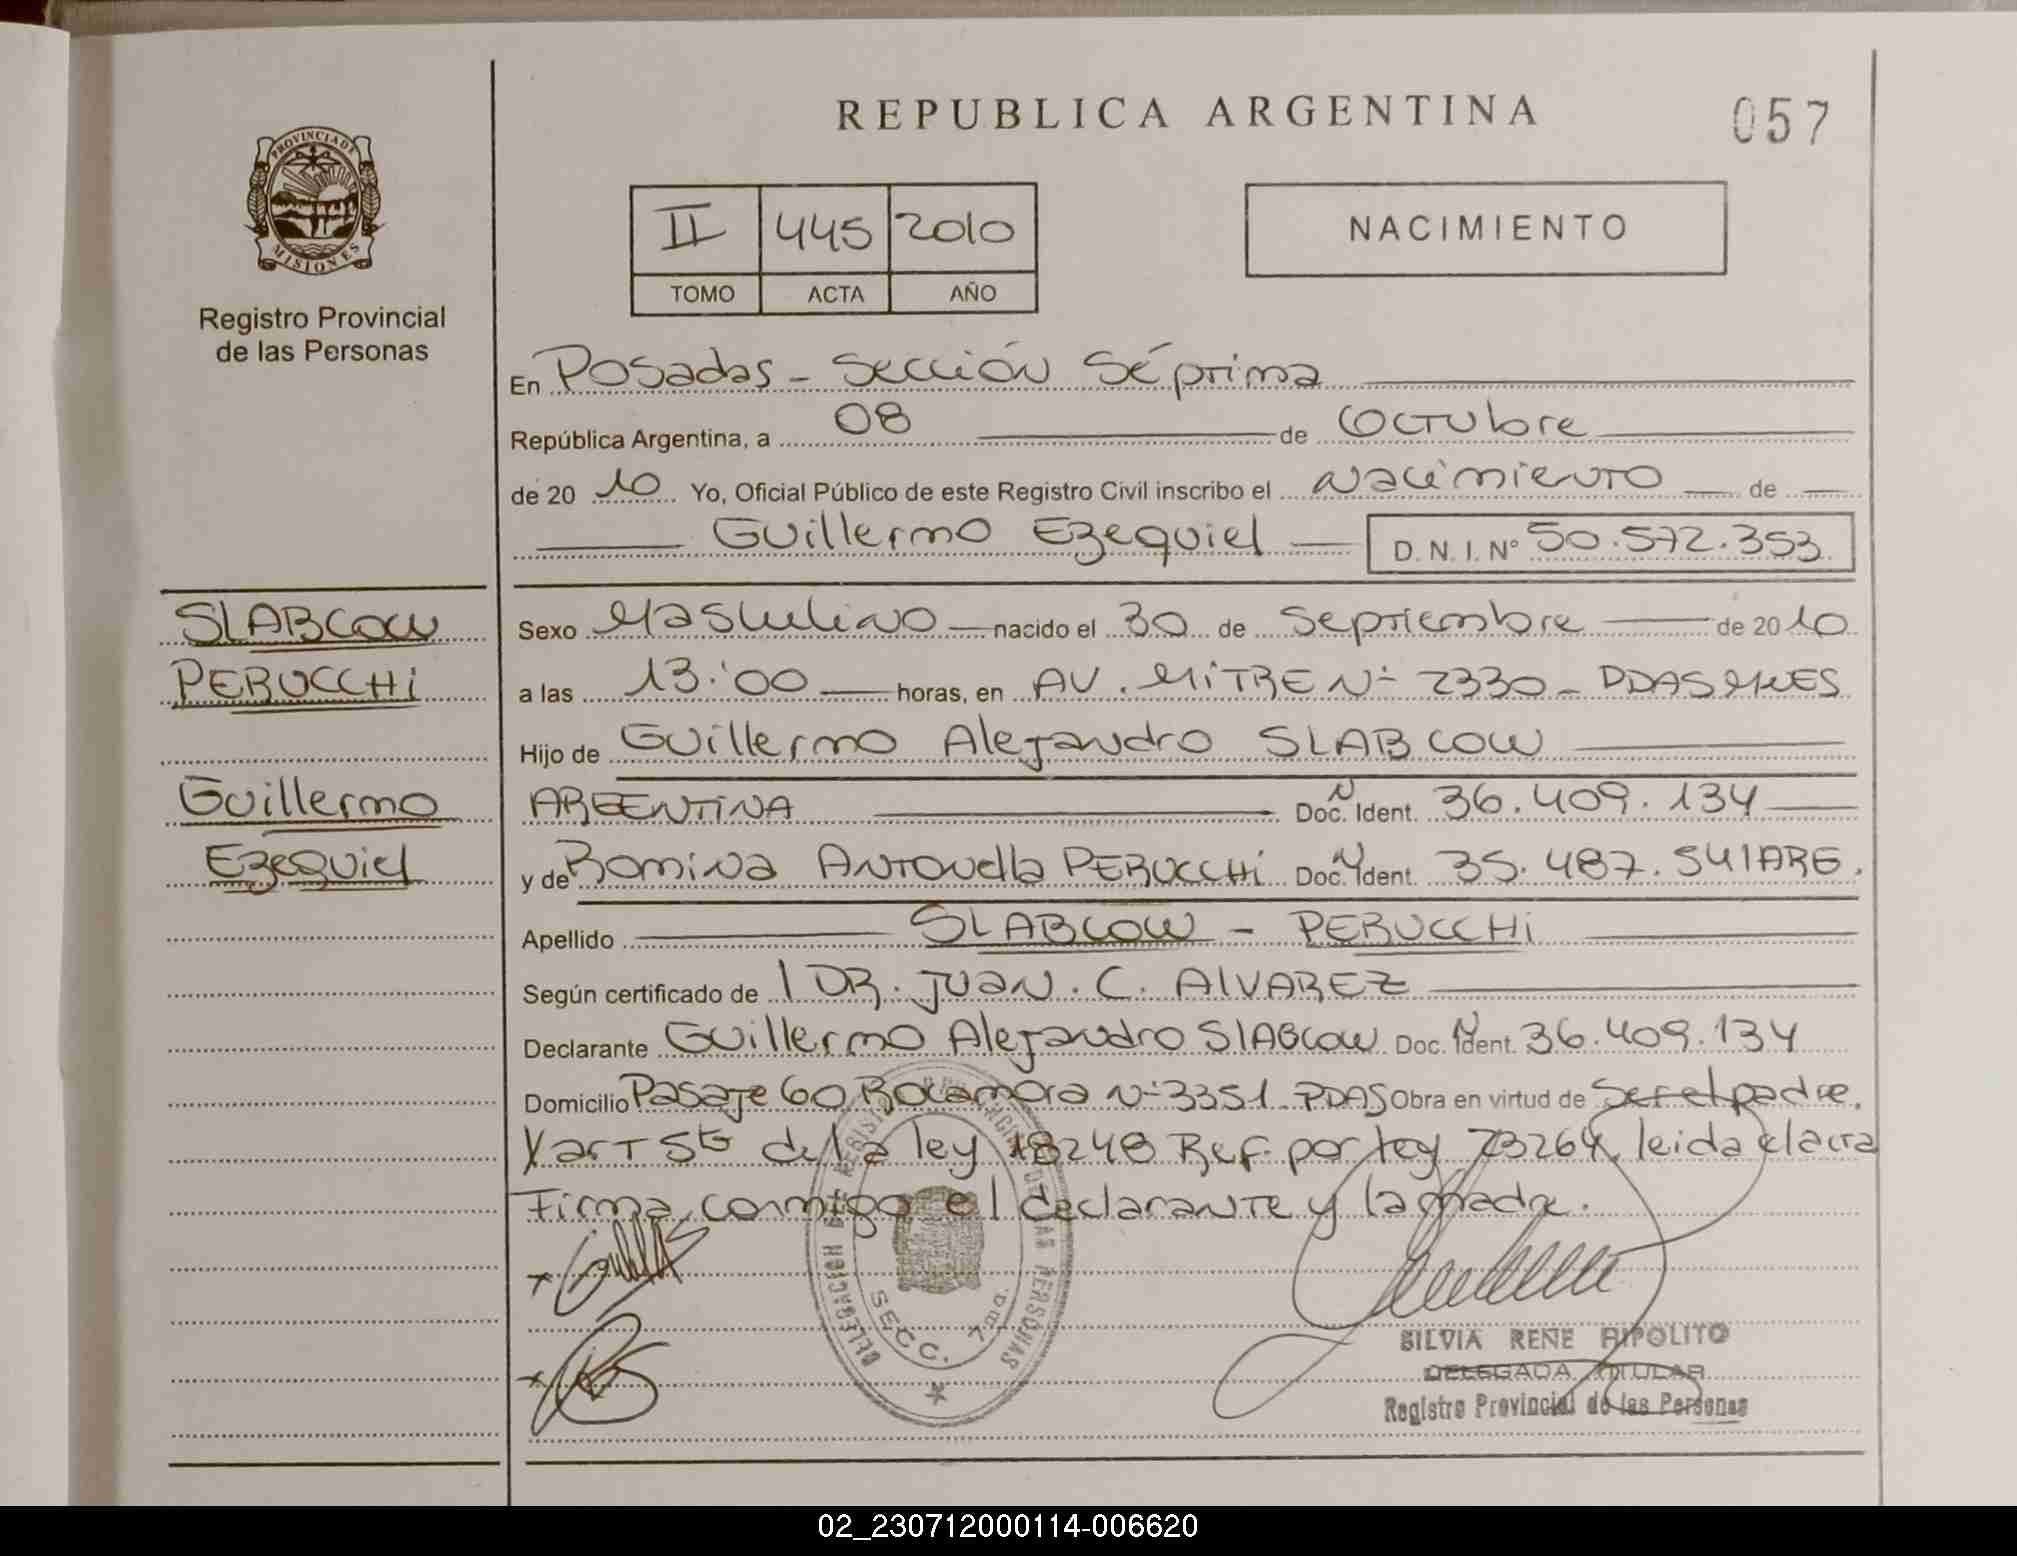 REPUBLICA ARGENTINA
057
PROVINCIA DE
MISIONES
Registro Provincial
de las Personas
II 445 2010
TOMO ACTA AÑO
NACIMIENTO
En Posadas - Sección Séptima
República Argentina, a 08 de Octubre
de 20 10 Yo, Oficial Público de este Registro Civil inscribo el Nacimiento de
Guillermo Ezequiel D.N.I. Nº 50.572.353
SLABCOW
PERUCCHi
Guillermo
Ezequiel
Sexo Masculino nacido el 30 de Septiembre de 20 10
a las 13:00 horas, en AV. MiTRE Nº 2330 - PDAS MNES
Hijo de Guillermo Alejandro SLABCOW
ARGENTINA Doc. Ident. 36.409.134
y de Romina ANTONella PERUCCHi Doc. Ident. 35.487.541 ARG.
Apellido SLABCOW - PERUCCHi
Según certificado de DR. JUAN. C. AlVAREZ
Declarante Guillermo Alejandro SlABCOW Doc. Ident. 36.409.134
Domicilio Pasaje 60 Rocamora Nº 3351 PDAS Obra en virtud de Ser el padre.
Y art 5to de la ley 18248 Ref. por ley 23264, leida el acta
Firma conmigo el declarante y la madre.
DELEGACION DE REGISTRO PROVINCIAL DE LAS PERSONAS
SECC. 7ma.
SILVIA RENE RIPOLITO
DELEGADA TITULAR
Registro Provincial de las Personas
02_230712000114-006620